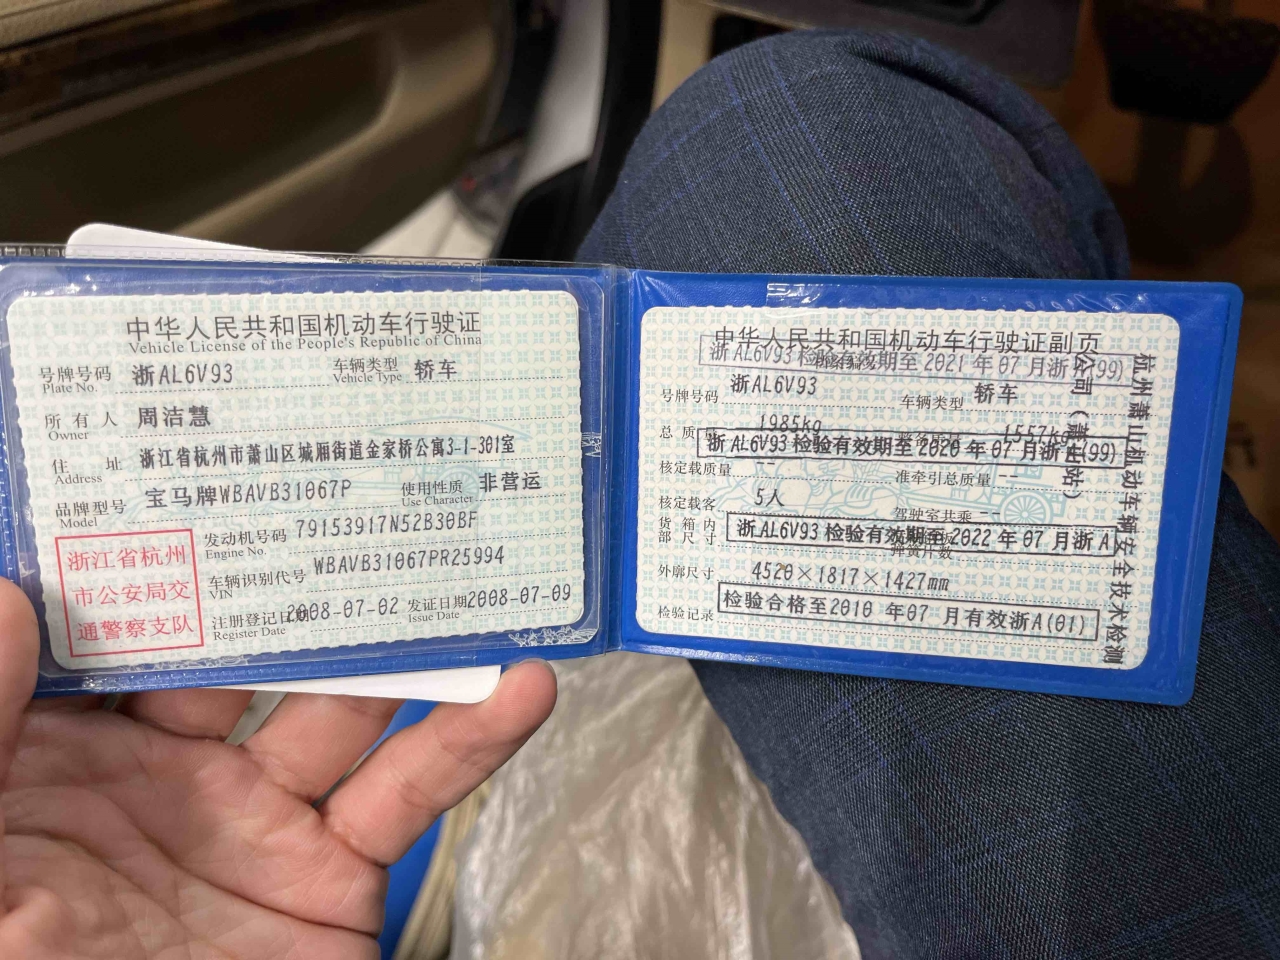 中华人民共和国机动车行驶证
Vehicle License of the People's Republic of China
号牌号码 浙AL6V93 车辆类型 轿车
Plate No. Vehicle Type
所有人 周洁慧
Owner
住址 浙江省杭州市萧山区城厢街道金家桥公寓3-1-301室
Address
品牌型号 宝马牌WBAVB31067P 使用性质 非营运
Model Use Character
浙江省杭州
市公安局交
通警察支队
发动机号码 79153917N52B30BF
Engine No.
车辆识别代号 WBAVB31067PR25994
VIN
注册登记日期 2008-07-02 发证日期 2008-07-09
Register Date Issue Date
中华人民共和国机动车行驶证副页
浙AL6V93 检验有效期至 2021 年 07 月浙 (99)
号牌号码 浙AL6V93 车辆类型 轿车
总质 1985kg 1557kg
浙AL6V93 检验有效期至 2020 年 07 月浙 (99)
核定载质量 -- 准牵引总质量 --
核定载客 5人 驾驶室共乘 --
货箱内
部尺寸
浙AL6V93 检验有效期至 2022 年 07 月浙A
弹簧片数
外廓尺寸 4520×1817×1427mm
检验记录 检验合格至2010 年07 月有效浙A(01)
杭州萧山机动车辆安全技术检测
公司（萧山站）